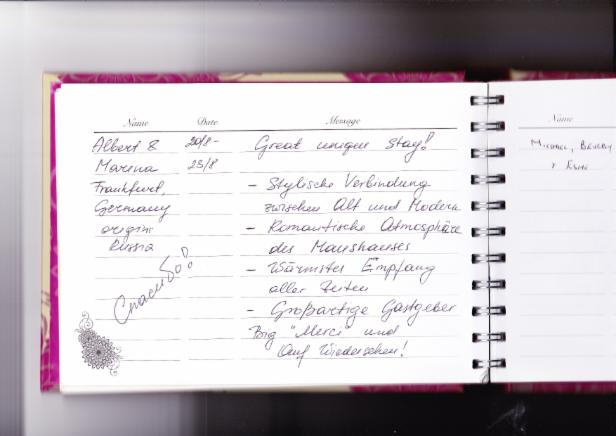 Name Date Message
Albert & 20/8 - Great unique Stay!
Marina 23/8
Frankfurt, - Stylische Verbindung
Germany zwischen Alt und Modern
origin: - Romantische Atmosphäre
Russia des Maushauses
- Wärmster Empfang
aller Zeiten
Спасибо!
- Großartige Gastgeber
Big "Merci" und
Auf Wiedersehen!
Name
Michael, Beverly